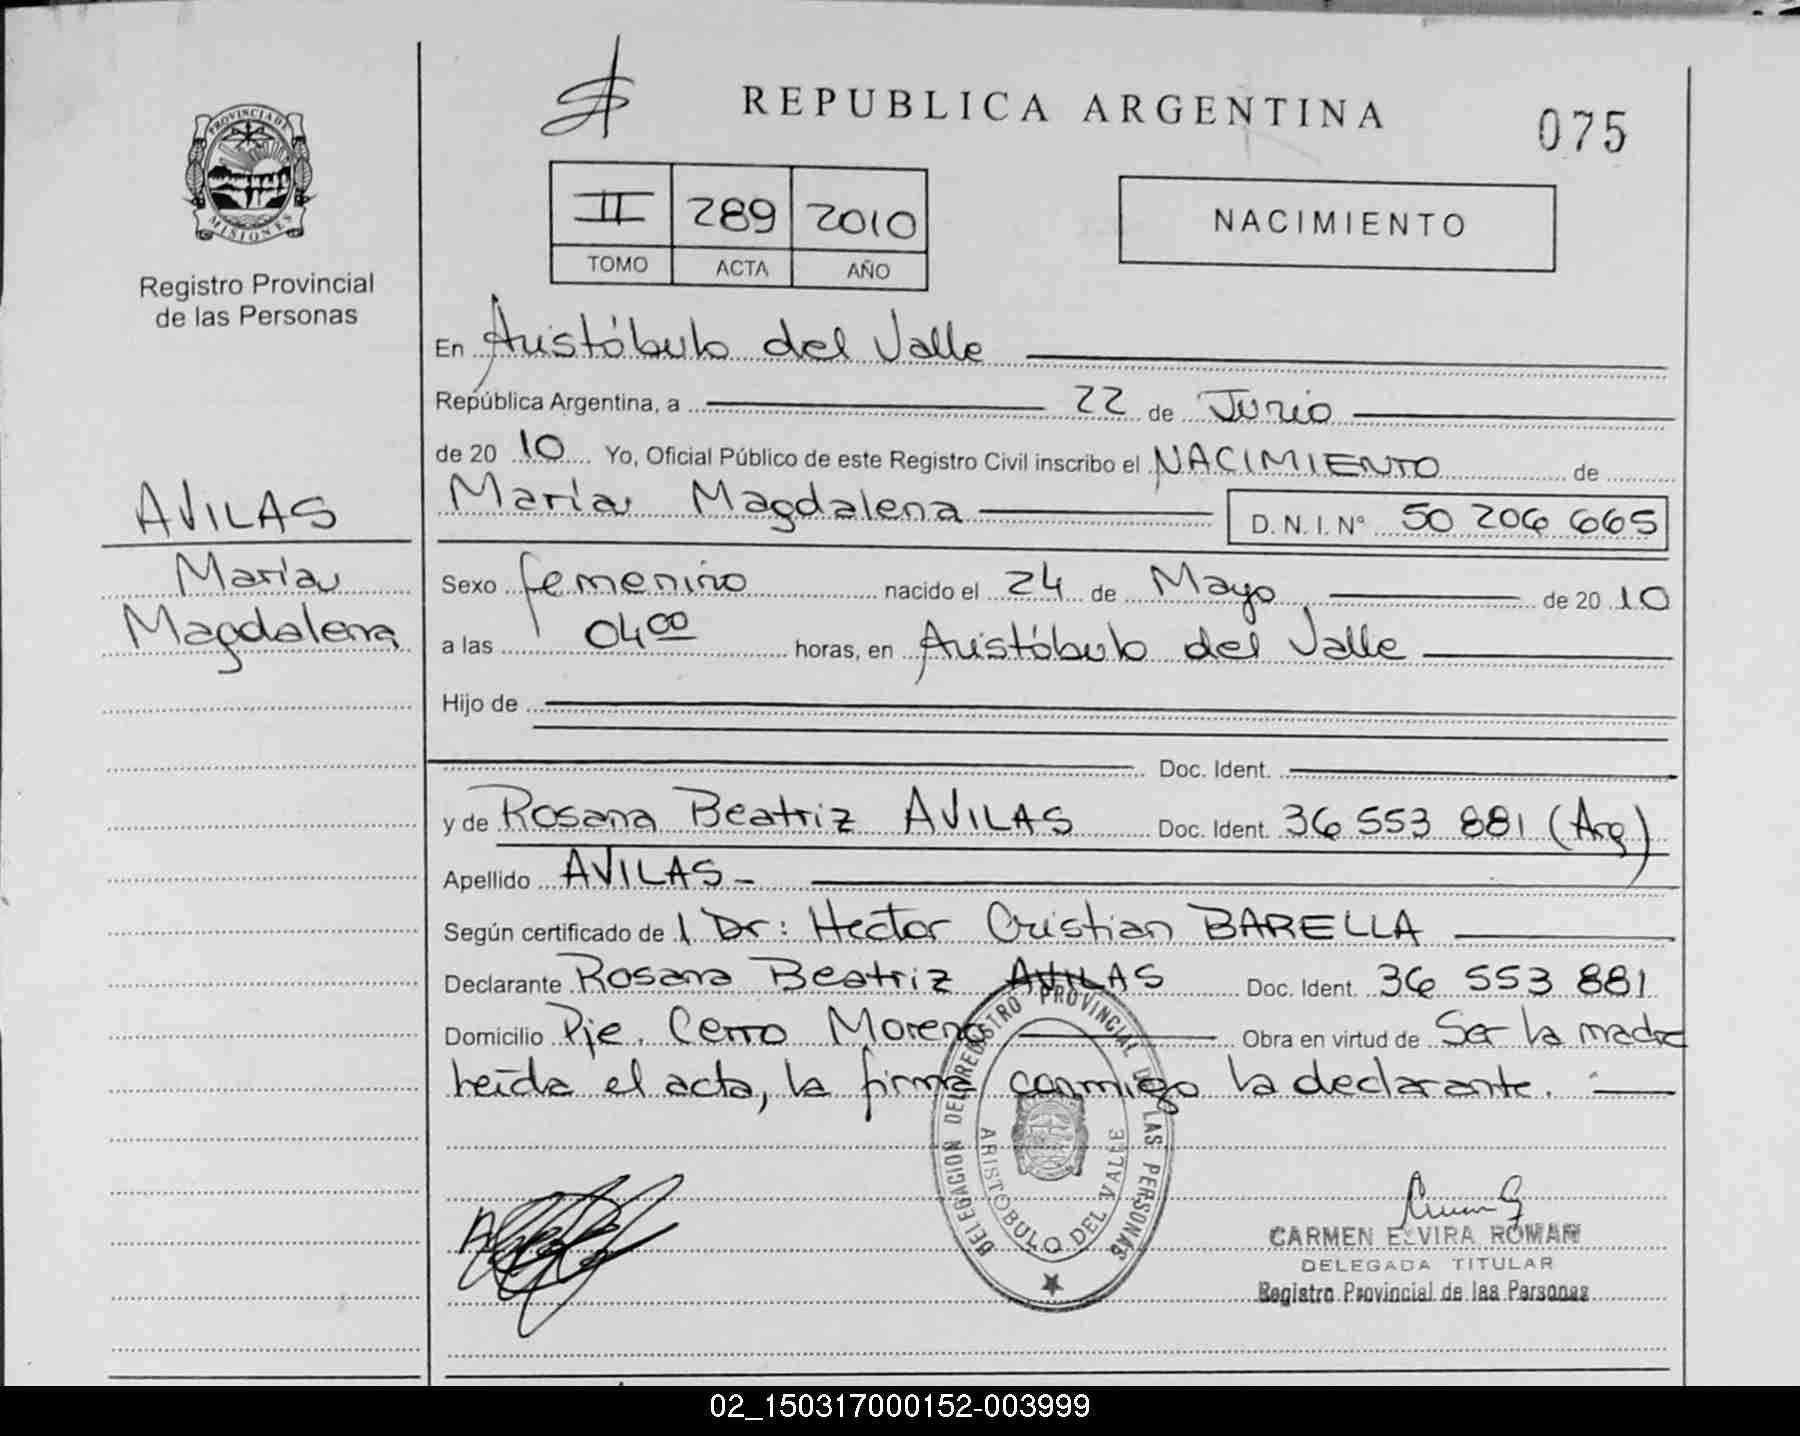 REPUBLICA ARGENTINA
075
PROVINCIA DE MISIONES
Registro Provincial
de las Personas
II 289 2010
TOMO ACTA AÑO
NACIMIENTO
En Aristóbulo del Valle
República Argentina, a 22 de Junio
de 20 10 Yo, Oficial Público de este Registro Civil inscribo el NACIMIENTO de
María Magdalena D.N.I. Nº 50 206 665
AVILAS
María
Magdalena
Sexo femenino nacido el 24 de Mayo de 20 10
a las 04 00 horas, en Aristóbulo del Valle
Hijo de
Doc. Ident.
y de Rosana Beatriz AVILAS Doc. Ident. 36 553 881 (Arg)
Apellido AVILAS -
Según certificado de l Dr: Hector Cristian BARELLA
Declarante Rosana Beatriz AVILAS Doc. Ident. 36 553 881
Domicilio Pje. Cerro Moreno Obra en virtud de Ser la madre
leída el acta, la firma conmigo la declarante.
DELEGACION DEL REGISTRO PROVINCIAL DE LAS PERSONAS
ARISTOBULO DEL VALLE
CARMEN ELVIRA ROMAN
DELEGADA TITULAR
Registro Provincial de las Personas
02_150317000152-003999